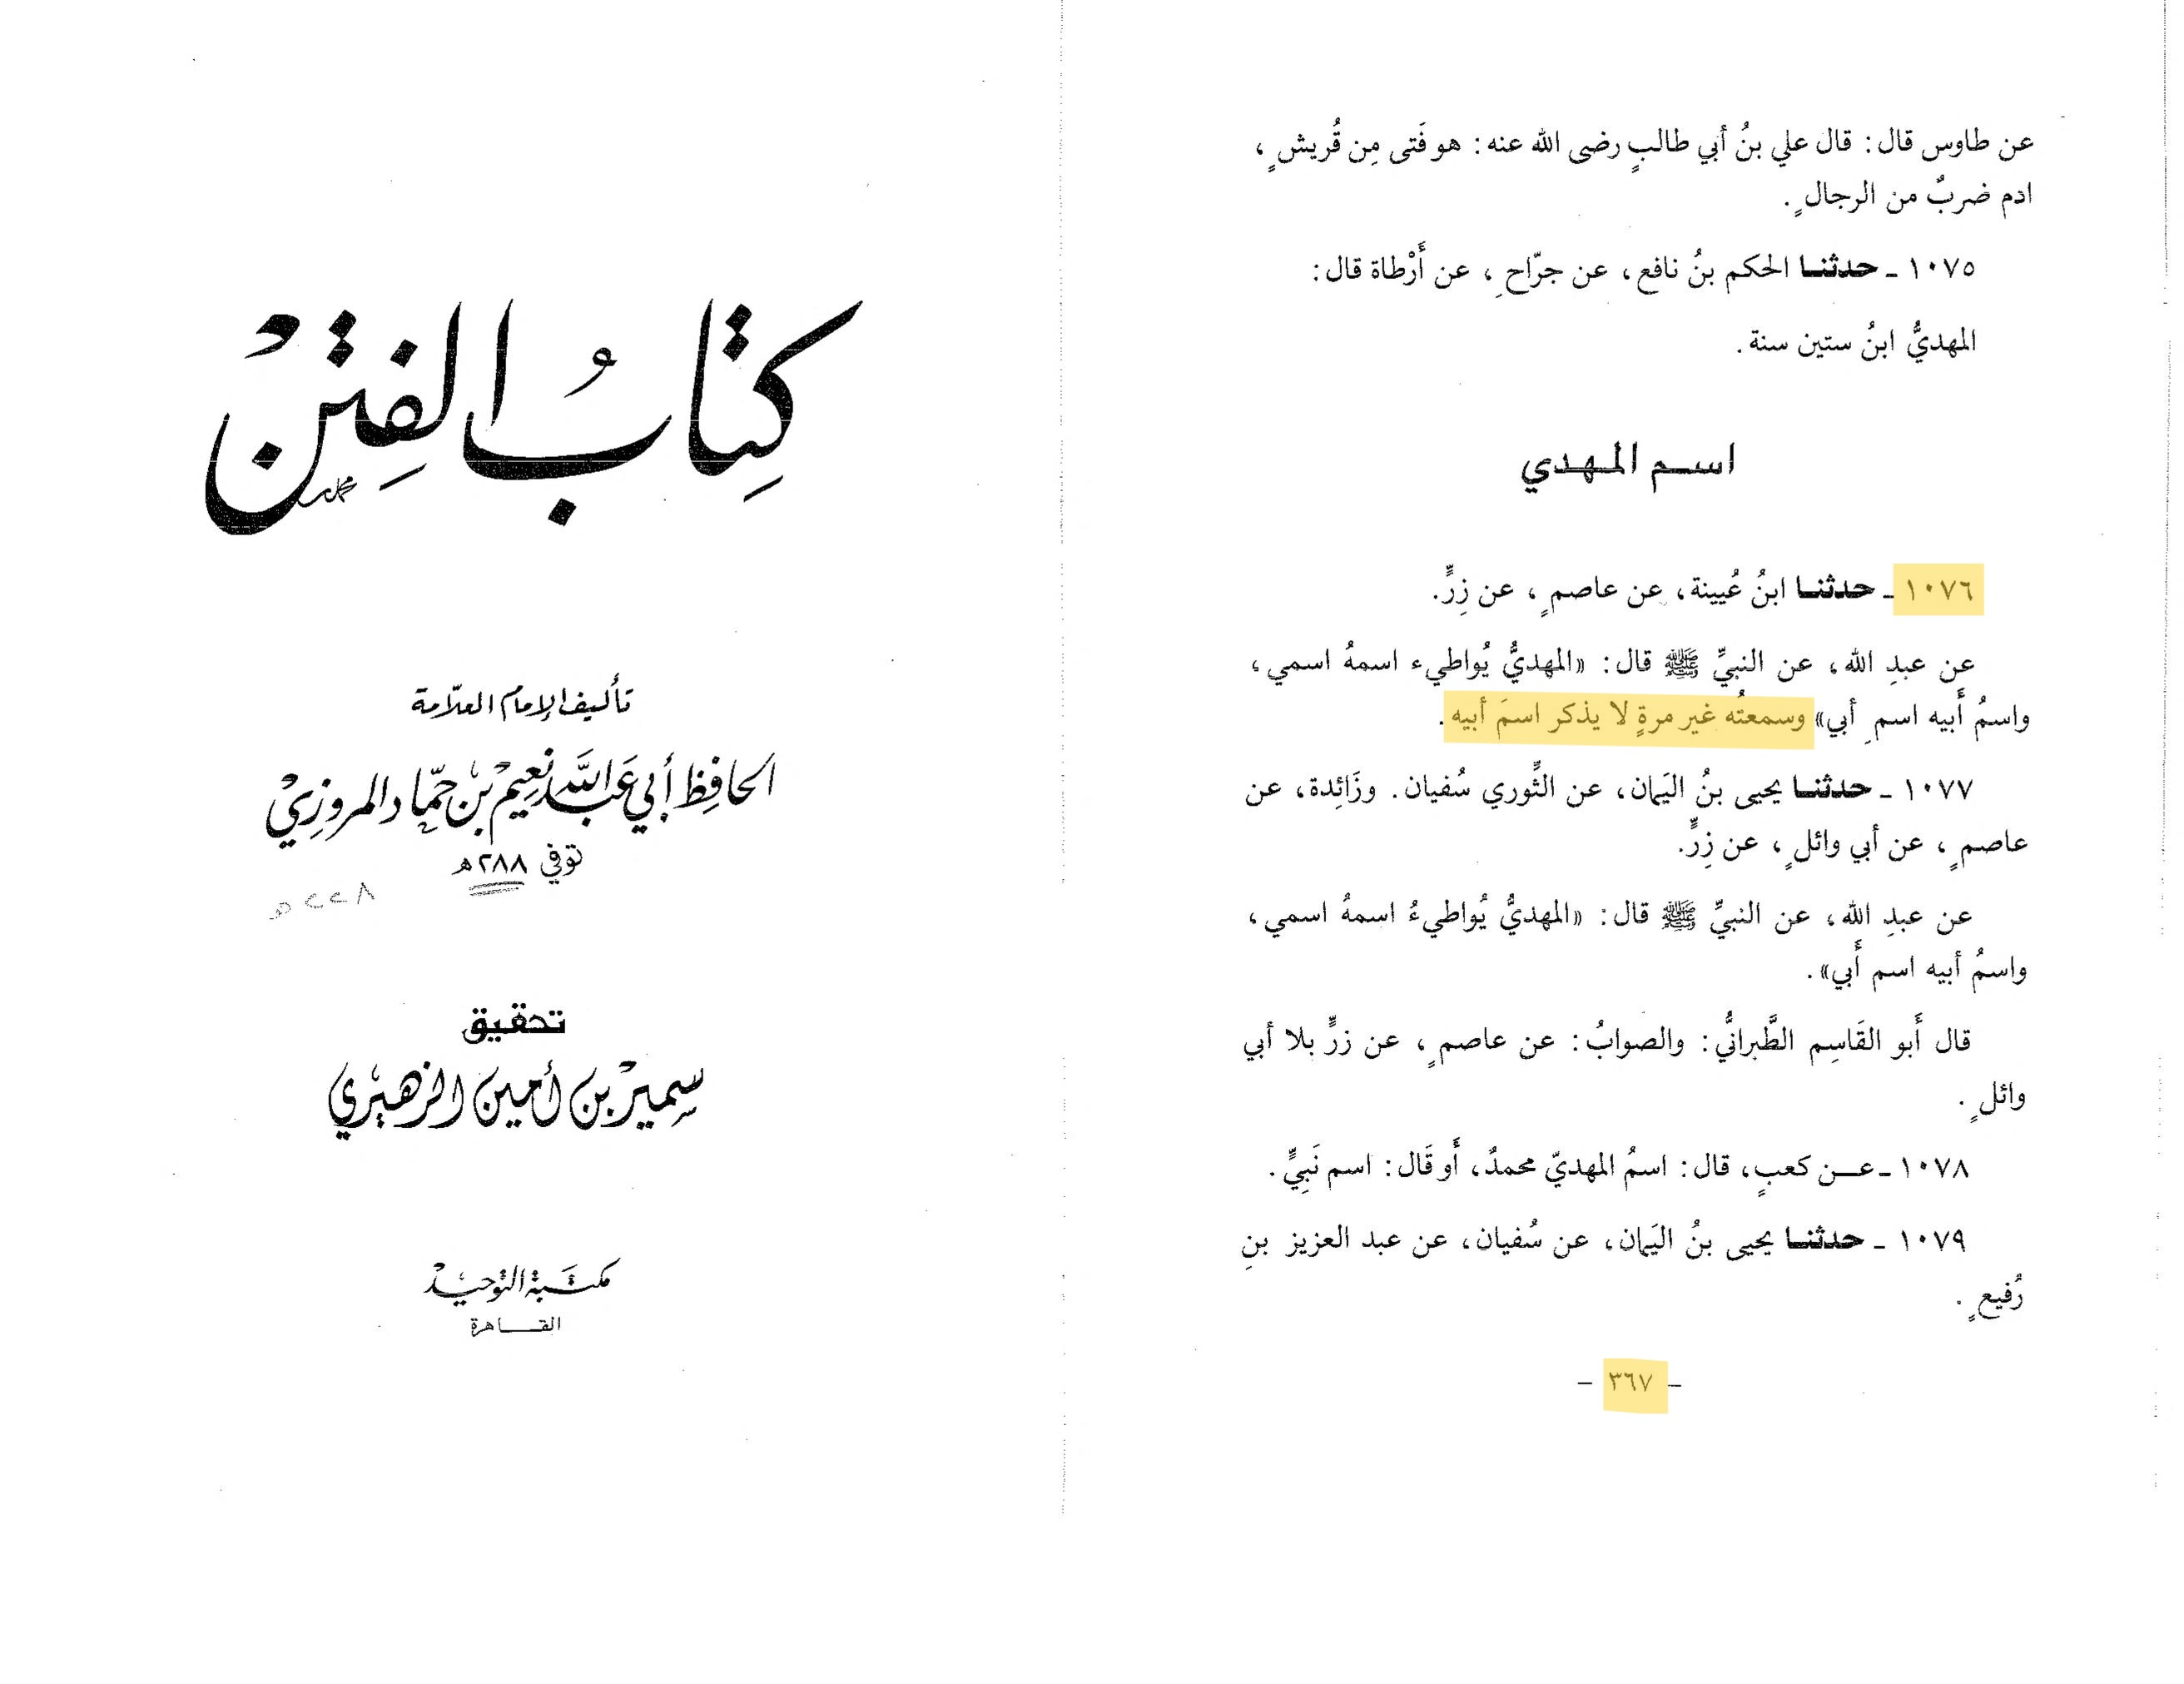 عن طاوس قال: قال علي بنُ أبي طالبٍ رضى الله عنه: هو فَتى مِن قُريشٍ،
ادم ضربٌ من الرجالٍ.
١٠٧٥ ـ حدثنـا الحكم بنُ نافع، عن جرّاحٍ، عن أَرْطاة قال:
المهديُّ ابنُ ستين سنة.
اسـم المـهـدي
١٠٧٦ ـ حدثنـا ابنُ عُيينة، عن عاصمٍ، عن زِرٍّ.
عن عبدِ الله، عن النبيِّ ﷺ قال: «المهديُّ يُواطيء اسمهُ اسمي،
واسمُ أَبيه اسمِ أبي» وسمعتُه غير مرةٍ لا يذكر اسمَ أبيه.
١٠٧٧ ـ حدثنـا يحيى بنُ اليَمان، عن الثَّوري سُفيان. وزَائِدة، عن
عاصمٍ، عن أبي وائلٍ، عن زِرٍّ.
عن عبدِ الله، عن النبيِّ ﷺ قال: «المهديُّ يُواطيءُ اسمهُ اسمي،
واسمُ أبيه اسم أَبي».
قال أَبو القَاسِم الطَّبرانيُّ: والصوابُ: عن عاصمٍ، عن زرٍّ بلا أبي
وائلٍ.
١٠٧٨ ـ عـن كعبٍ، قال: اسمُ المهديّ محمدٌ، أَو قَال: اسم نَبِيٍّ.
١٠٧٩ ـ حدثنـا يحيى بنُ اليَمان، عن سُفيان، عن عبد العزيز بنِ
رُفيعٍ.
ـ ٣٦٧ ـ
كِتَابُ الفِتَنْ
تأليف الإمام العلاّمة
الحافِظ أبي عَبد اللَّه نعِيم بْن حمّاد المروزِيْ
توفي ٢٨٨ هـ
٢٢٨ هـ
تحقيق
سمير بن أمين الزهيري
مكتَبة التوحيد
القـاهرة